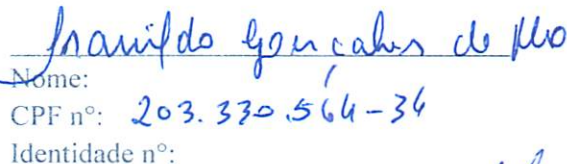 Gonçalves de
Nome:
CPF nº: 203.330.564-34
Identidade nº: